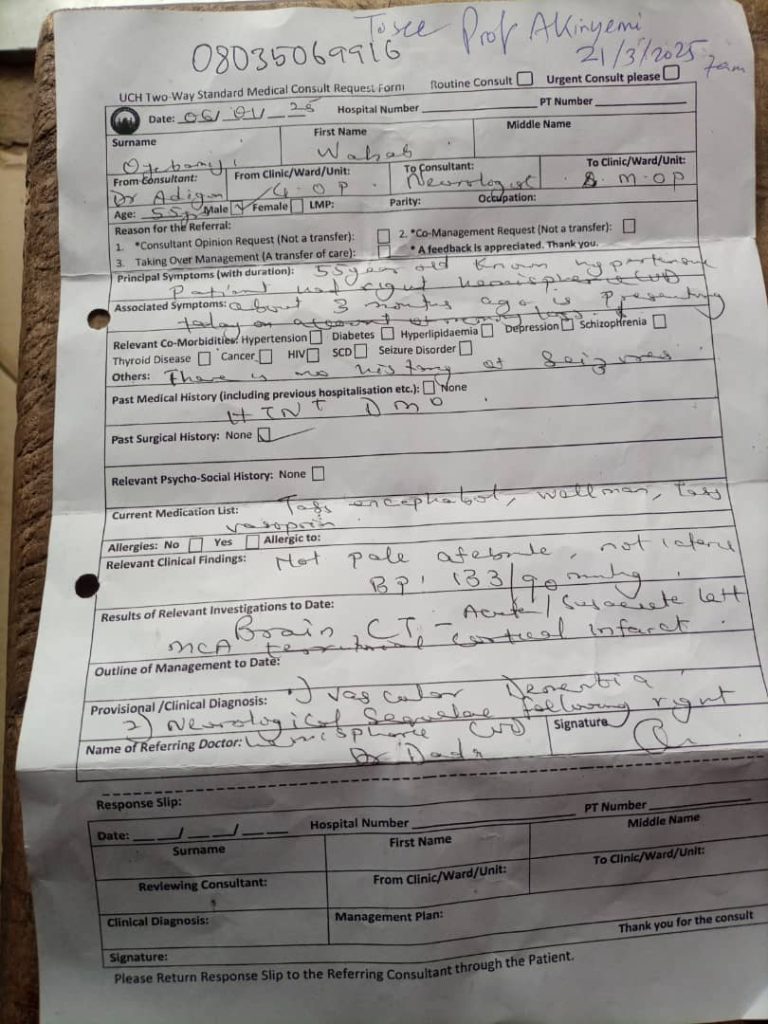 To see Prof Akinyemi
08035069916
21/3/2025
7am
UCH Two-Way Standard Medical Consult Request Form Routine Consult Urgent Consult please
Date: 06/01/25 Hospital Number PT Number
Surname First Name Middle Name
Wahab
From Consultant: From Clinic/Ward/Unit: To Consultant: To Clinic/Ward/Unit:
Dr Adigun G.O.P Neurologist M.O.P
Age: 55yrs Male Female LMP: Parity: Occupation:
Reason for the Referral:
1. *Consultant Opinion Request (Not a transfer): 2. *Co-Management Request (Not a transfer):
3. Taking Over Management (A transfer of care): * A feedback is appreciated. Thank you.
Principal Symptoms (with duration): 55 year old known hypertensive
Patient had right hemispheric CVD
Associated Symptoms: about 3 months ago is presenting
today on account of memory loss.
Relevant Co-Morbidities: Hypertension Diabetes Hyperlipidaemia Depression Schizophrenia
Thyroid Disease Cancer HIV SCD Seizure Disorder
Others: There is no history of Seizures
Past Medical History (including previous hospitalisation etc.): None
HTN+ DM0
Past Surgical History: None
Relevant Psycho-Social History: None
Current Medication List: Tabs encephabol, wellman, Tabs
vasoprin
Allergies: No Yes Allergic to:
Relevant Clinical Findings: Not pale afebrile, not icteric
BP: 133/90 mmHg.
Results of Relevant Investigations to Date: Acute/Subacute left
Brain CT -
MCA territorial cortical infarct.
Outline of Management to Date:
Provisional /Clinical Diagnosis: 1) Vascular Dementia
2) Neurological Sequelae following right
Name of Referring Doctor: hemispheric CVD Signature
Dr Dada
Response Slip:
Date: __/__/__ Hospital Number PT Number
Surname First Name Middle Name
Reviewing Consultant: From Clinic/Ward/Unit: To Clinic/Ward/Unit:
Clinical Diagnosis: Management Plan:
Thank you for the consult
Signature:
Please Return Response Slip to the Referring Consultant through the Patient.